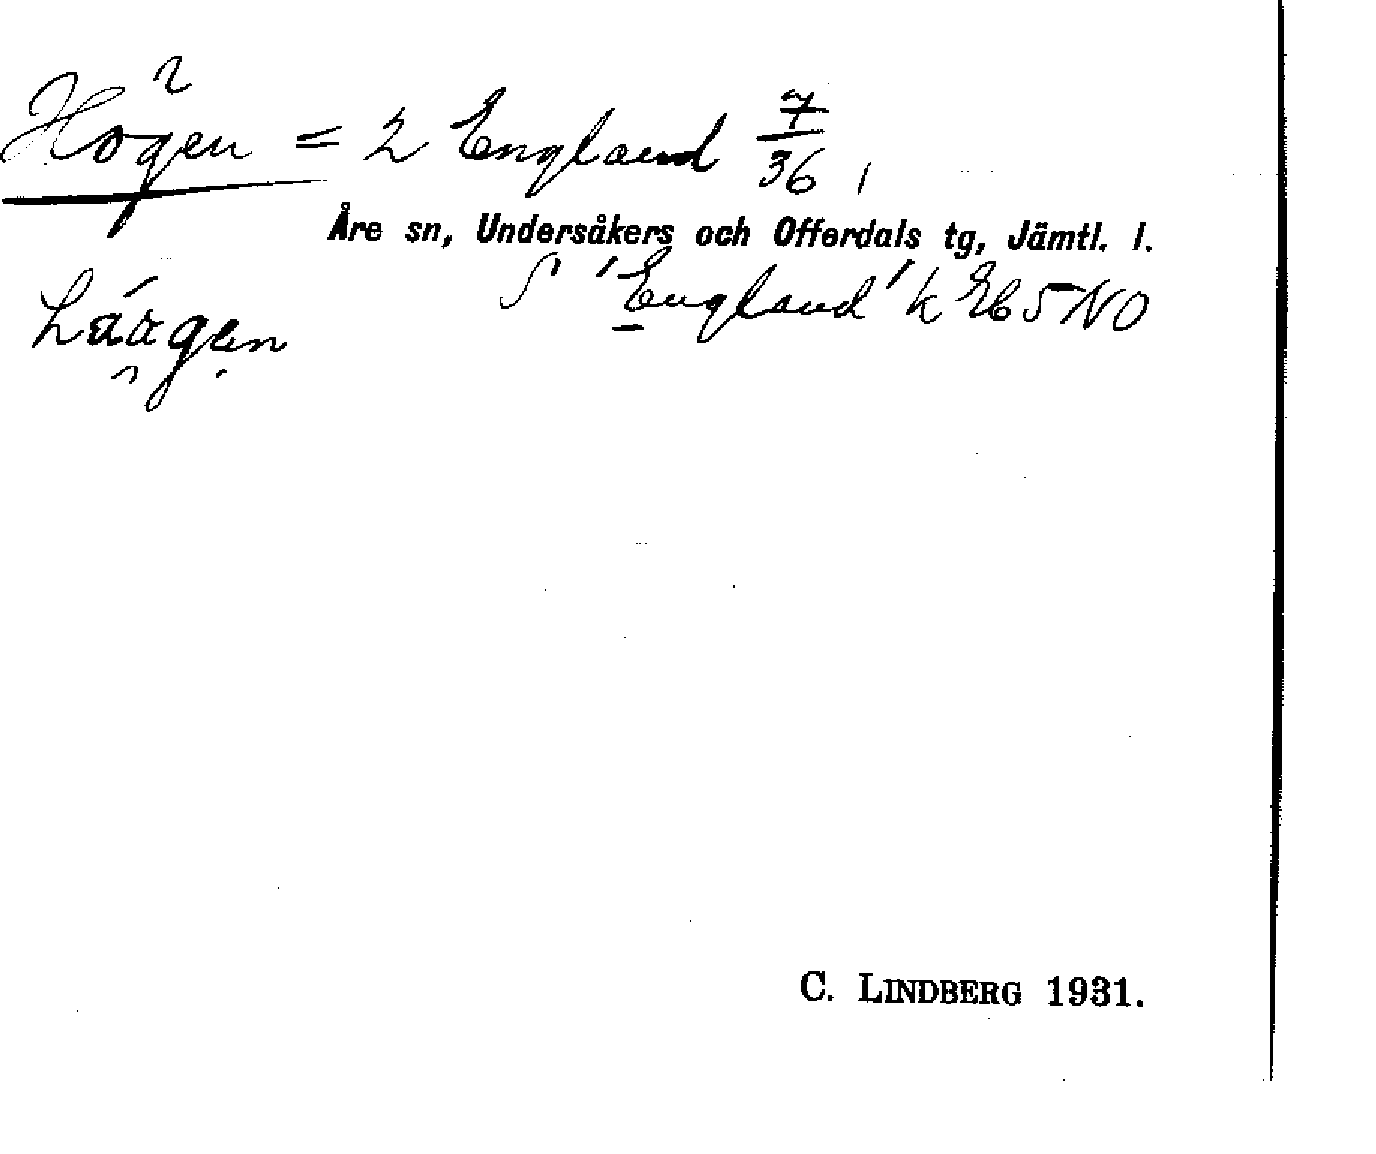 Högen = 2 England 7/36,
Åre sn, Undersåkers och Offerdals tg, Jämtl. l.
'England' k Eb 5 NO
C. LINDBERG 1931.